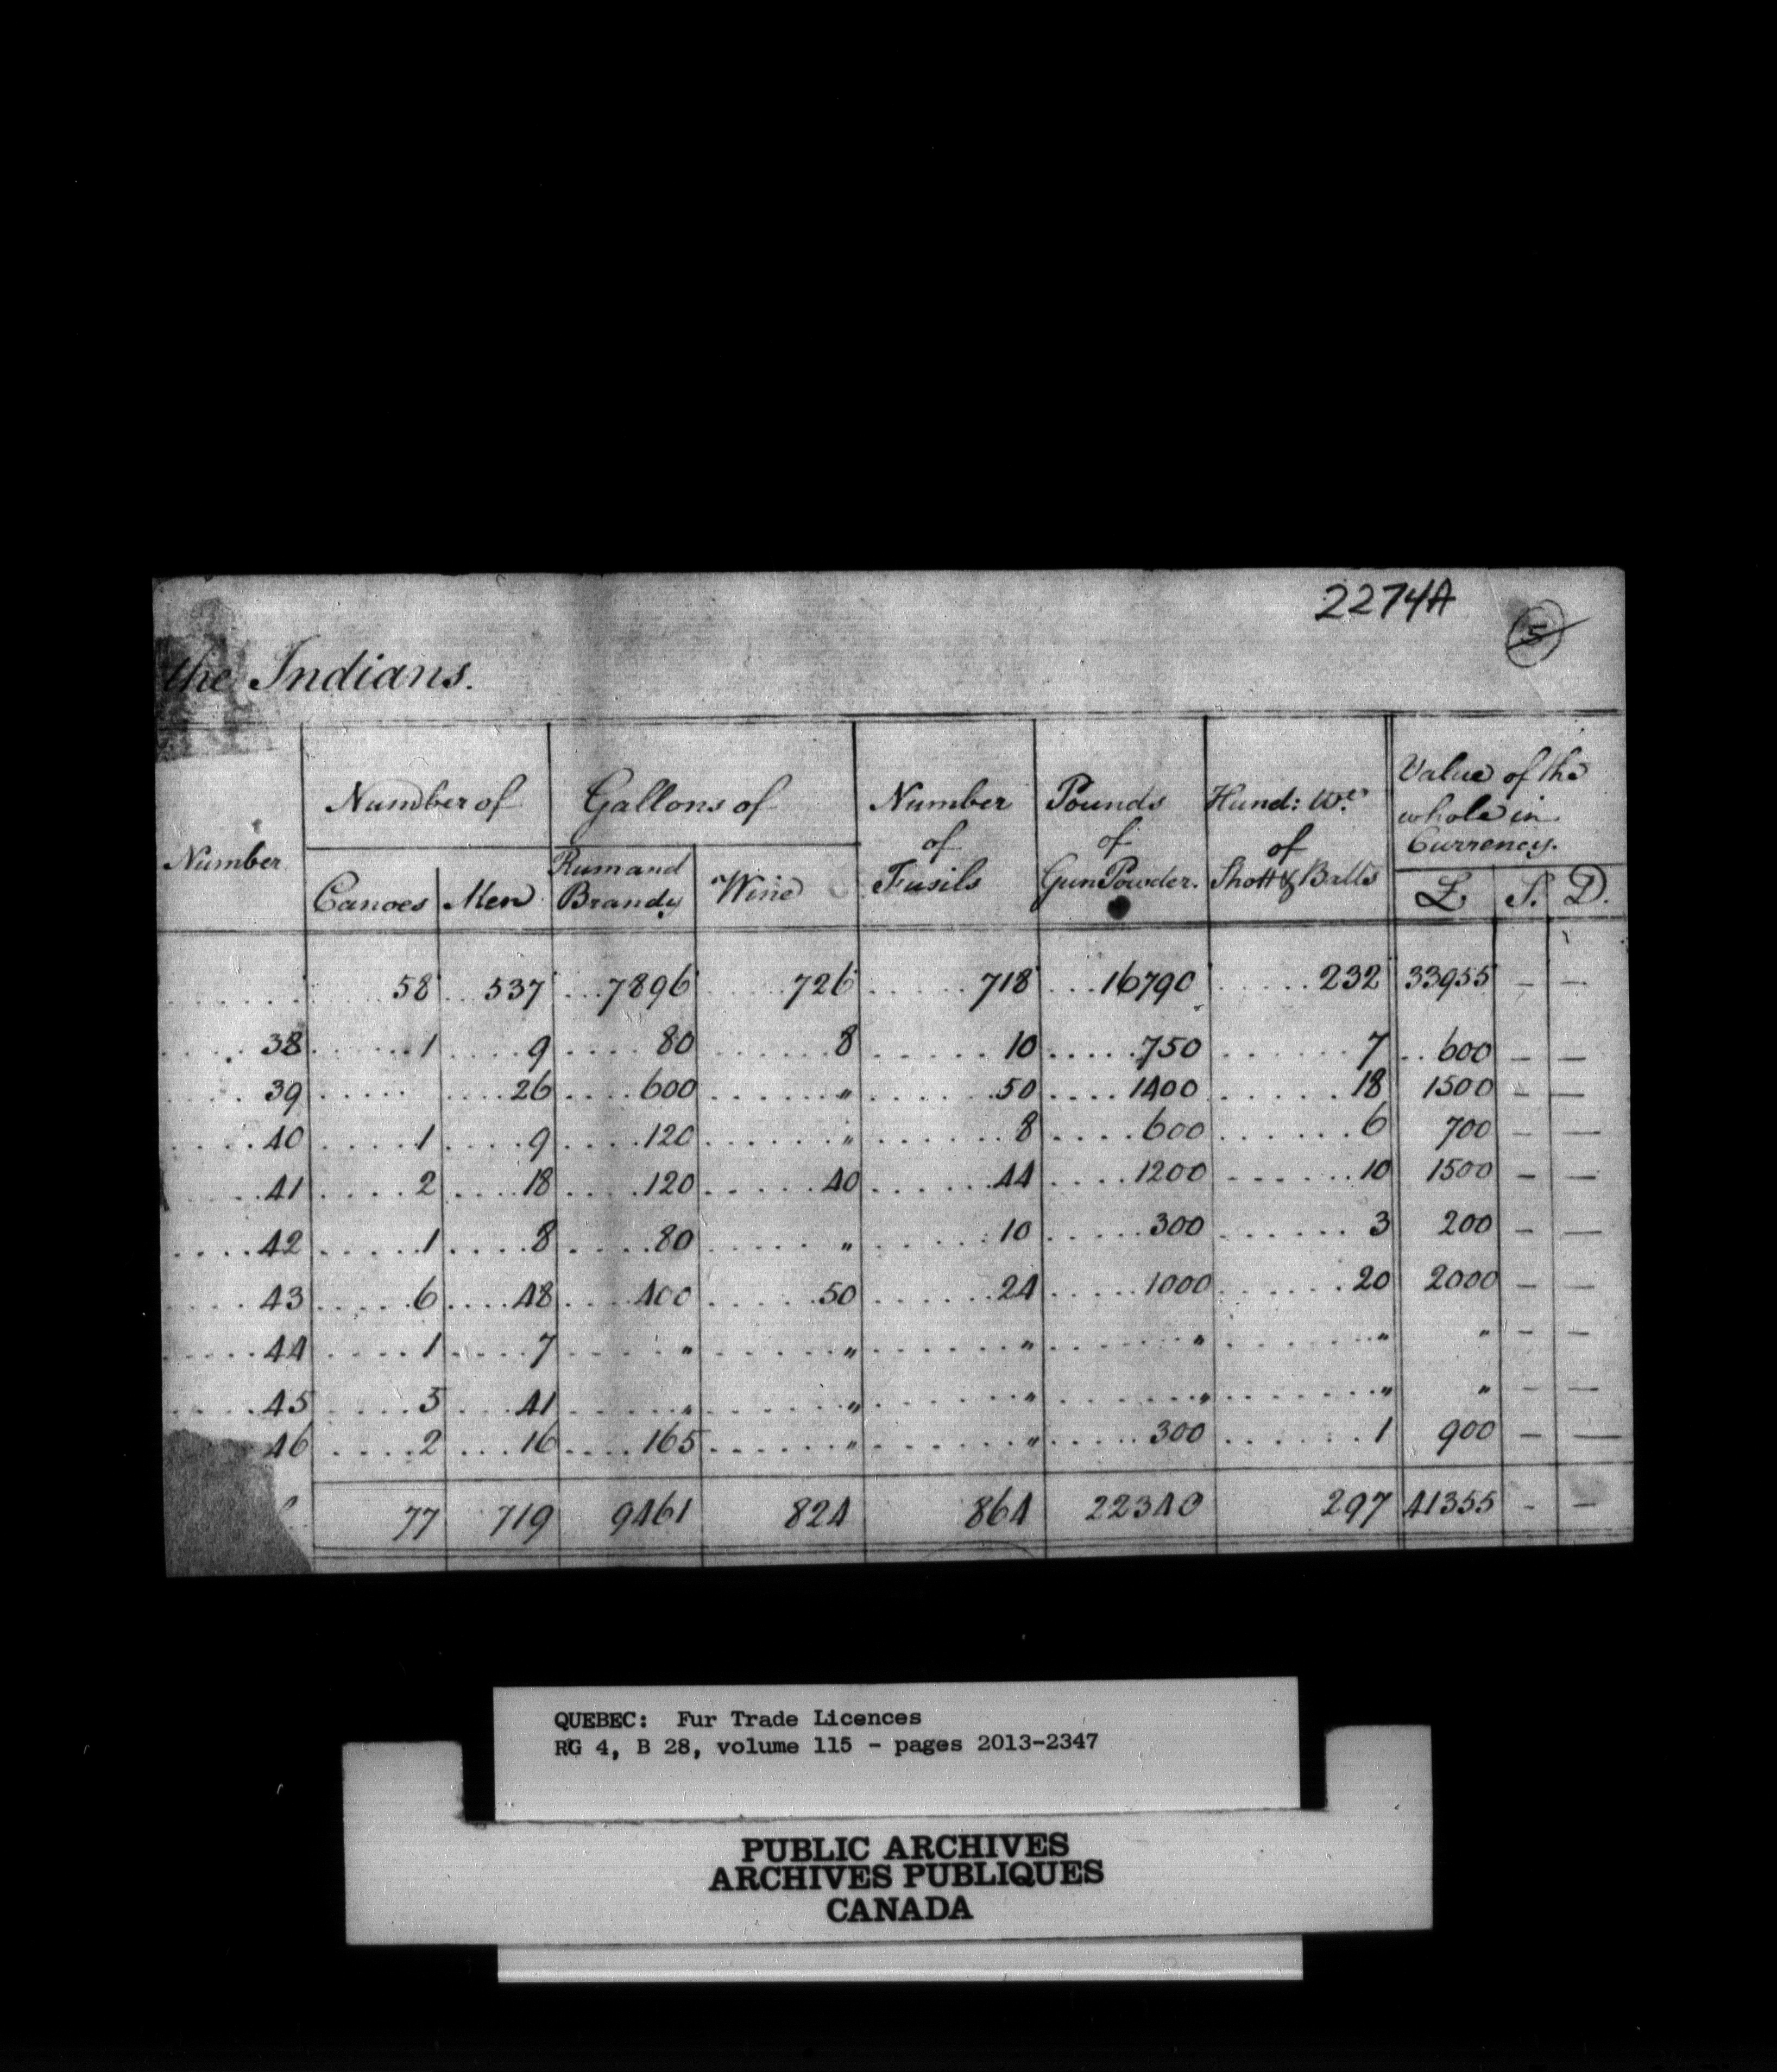 2274A
5
the Indians.
Number
Number of
Canoes Men
Gallons of
Rum and Brandy
Wine
Number of Fusils
Pounds of Gun Powder.
Hund: Wt. of Shott & Balls
Value of the whole in Currency.
£ S. D.
58 537 7896 726 718 16790 232 33955 – –
38 1 9 80 8 10 750 7 600 – –
39 26 600 " 50 1400 18 1500 – –
40 1 9 120 " 8 600 6 700 – –
41 2 18 120 40 44 1200 10 1500 – –
42 1 8 80 " 10 300 3 200 – –
43 6 48 400 50 24 1000 20 2000 – –
44 1 7 " " " " " " – –
45 5 41 " " " " " " – –
46 2 16 165 " " 300 1 900 – –
77 719 9461 824 864 22340 297 41355 – –
QUEBEC: Fur Trade Licences
RG 4, B 28, volume 115 - pages 2013-2347
PUBLIC ARCHIVES
ARCHIVES PUBLIQUES
CANADA